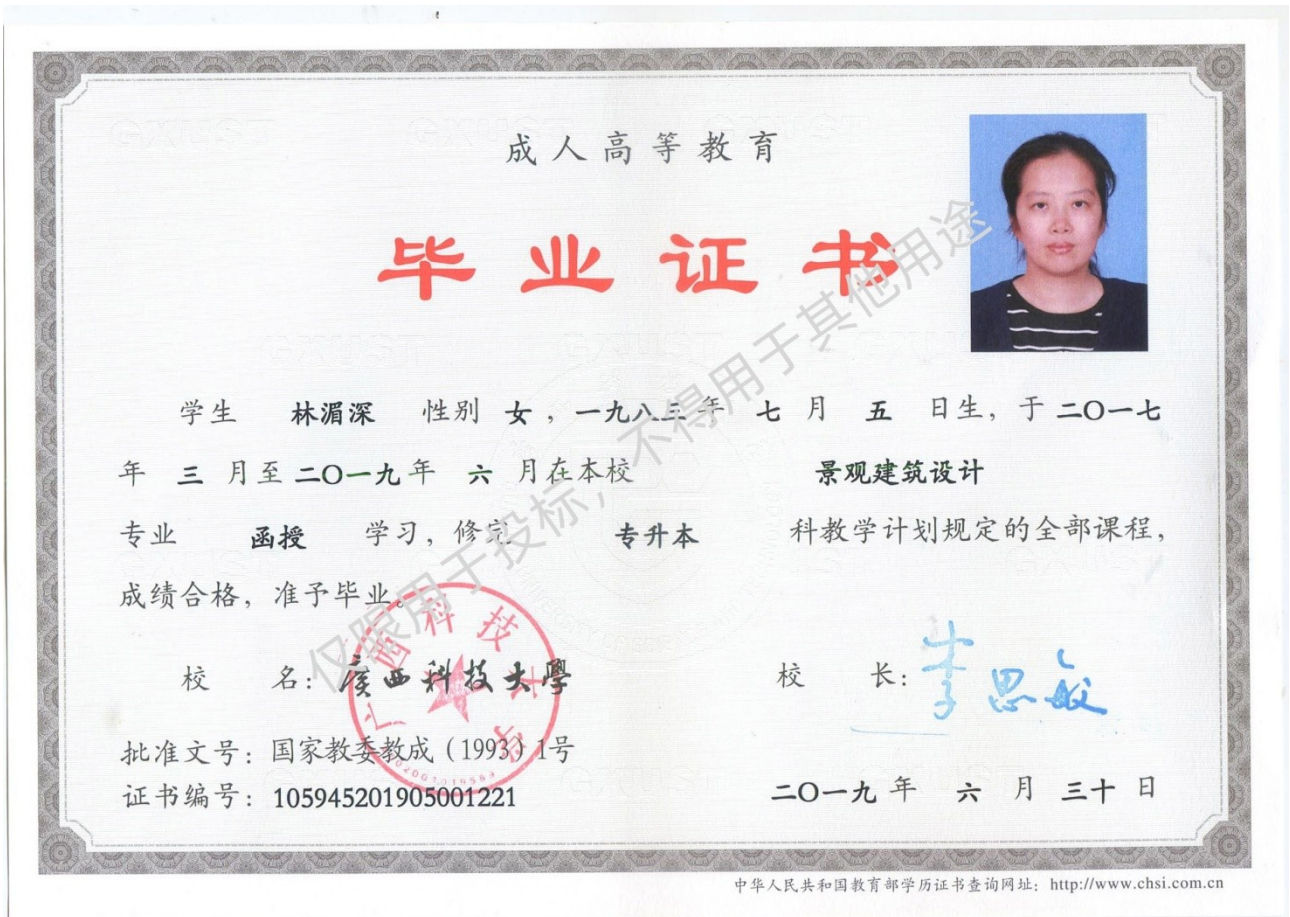 成人高等教育
毕业证书
学生 林湄深 性别 女，一九八三年 七 月 五 日生，于二〇一七
年 三 月至二〇一九年 六 月在本校 景观建筑设计
专业 函授 学习，修完 专升本 科教学计划规定的全部课程，
成绩合格，准予毕业。
校 名：廣西科技大學
校 长：李思敏
批准文号：国家教委教成（1993）1号
证书编号：105945201905001221
二〇一九年 六 月 三十 日
广西科技大学
仅限用于投标，不得用于其他用途
中华人民共和国教育部学历证书查询网址：http://www.chsi.com.cn